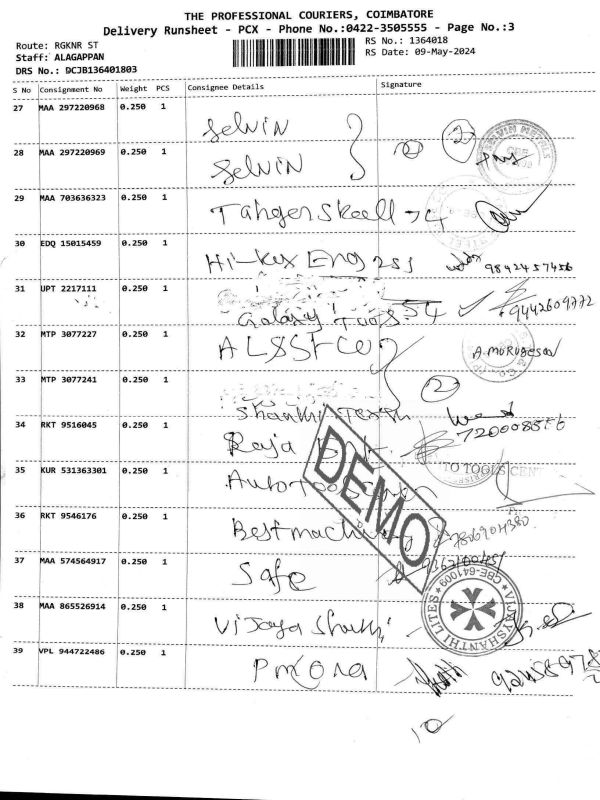 THE PROFESSIONAL COURIERS, COIMBATORE
Delivery Runsheet - PCX - Phone No.:0422-3505555 - Page No.:3
Route: RGKNR ST
RS No.: 1364018
Staff: ALAGAPPAN
RS Date: 09-May-2024
DRS No.: DCJB136401803
S No Consignment No Weight PCS Consignee Details Signature
27 MAA 297220968 0.250 1 Selvin
28 MAA 297220969 0.250 1 Selvin 2
29 MAA 703636323 0.250 1
30 EDQ 15015459 0.250 1 9842457456
31 UPT 2217111 0.250 1 Galaxy Tools 9442609772
32 MTP 3077227 0.250 1 A. MURUGESAN
33 MTP 3077241 0.250 1 2
34 RKT 9516045 0.250 1 Raja
35 KUR 531363301 0.250 1 TO TOOLS CENT
36 RKT 9546176 0.250 1 Best machinery
37 MAA 574564917 0.250 1 Safe
38 MAA 865526914 0.250 1 Vijaya Shanthi
39 VPL 944722486 0.250 1
DEMO
VIJAYSHANTHI LITES
CBE-641009
10